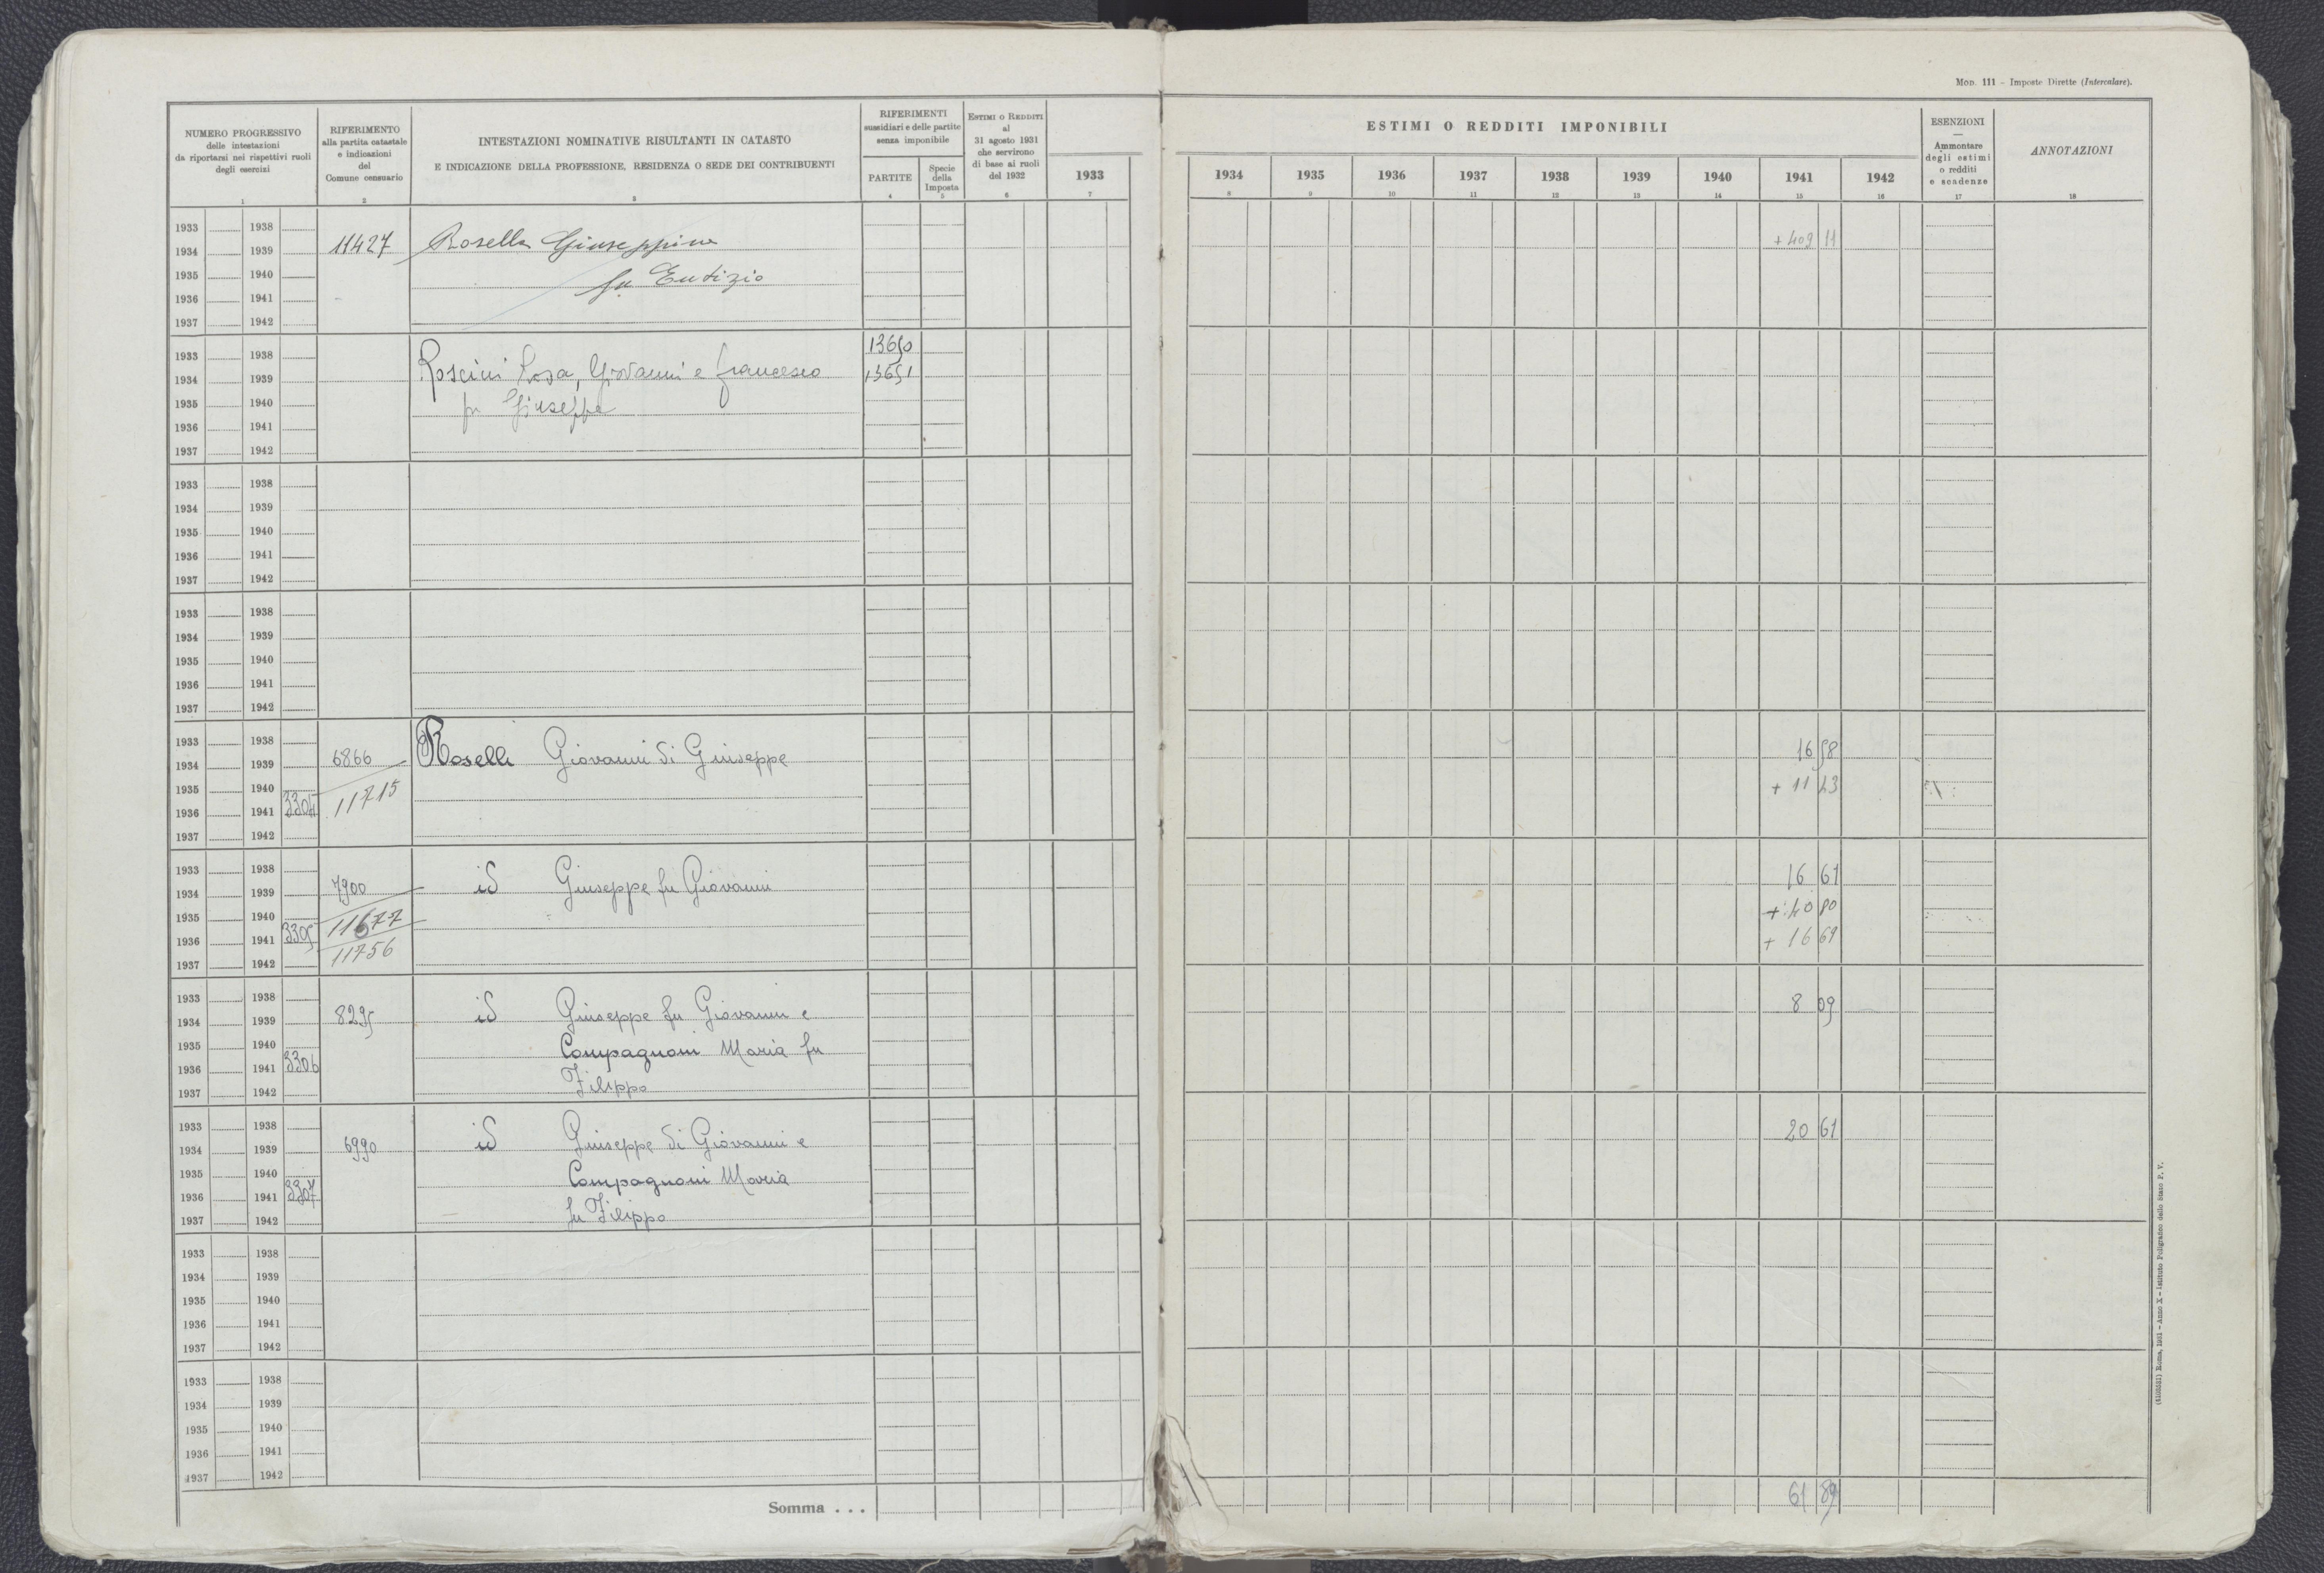 MOD. 111 – Imposte Dirette (Intercalare).
NUMERO PROGRESSIVO
delle intestazioni
da riportarsi nei rispettivi ruoli
degli esercizi
1
RIFERIMENTO
alla partita catastale
e indicazioni
del
Comune censuario
2
INTESTAZIONI NOMINATIVE RISULTANTI IN CATASTO
E INDICAZIONE DELLA PROFESSIONE, RESIDENZA O SEDE DEI CONTRIBUENTI
3
RIFERIMENTI
sussidiari e delle partite
senza imponibile
PARTITE
4
Specie
della
Imposta
5
ESTIMI O REDDITI
al
31 agosto 1931
che servirono
di base ai ruoli
del 1932
6
1933
7
ESTIMI O REDDITI IMPONIBILI
1934 1935 1936 1937 1938 1939 1940 1941 1942
8 9 10 11 12 13 14 15 16
ESENZIONI
—
Ammontare
degli estimi
o redditi
e scadenze
17
ANNOTAZIONI
18
1933 1938
1934 1939 11427 Rosella Giuseppina + 409 11
1935 1940 fu Eutizio
1936 1941
1937 1942
1933 1938 13650
1934 1939 Roscini Rosa, Giovanni e Francesco 13651
1935 1940 fu Giuseppe
1936 1941
1937 1942
1933 1938
1934 1939
1935 1940
1936 1941
1937 1942
1933 1938
1934 1939
1935 1940
1936 1941
1937 1942
1933 1938
1934 1939 6866 Roselli Giovanni di Giuseppe 16 58
1935 1940 11715 + 11 43
1936 1941 3304
1937 1942
1933 1938
1934 1939 7900 id Giuseppe fu Giovanni 16 61
1935 1940 11677 + 40 80
1936 1941 3305 11756 + 16 69
1937 1942
1933 1938
1934 1939 8295 id Giuseppe fu Giovanni e 8 09
1935 1940 Compagnoni Maria fu
1936 1941 3306 Filippo
1937 1942
1933 1938
1934 1939 6990 id Giuseppe di Giovanni e 20 61
1935 1940 Compagnoni Maria
1936 1941 3307 fu Filippo
1937 1942
1933 1938
1934 1939
1935 1940
1936 1941
1937 1942
1933 1938
1934 1939
1935 1940
1936 1941
1937 1942
Somma . . . 61 89
(4103551) Roma, 1931 – Anno X – Istituto Poligrafico dello Stato P. V.